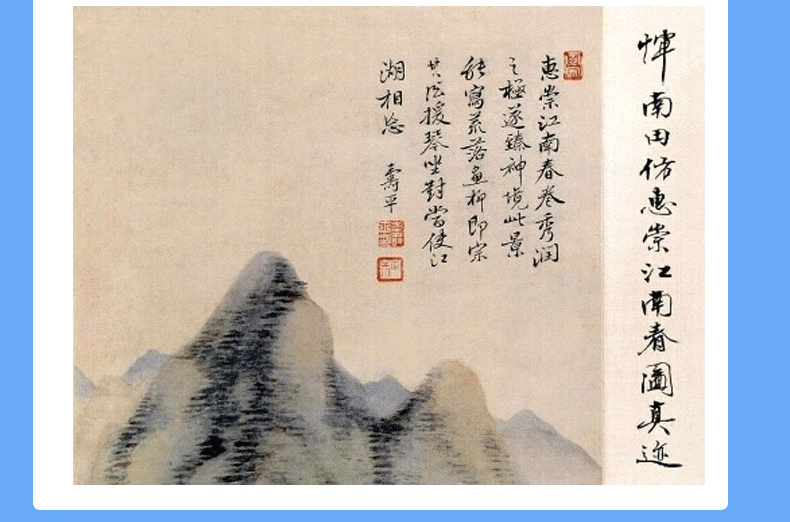 惲南田仿惠崇江南春圖真迹
惠崇江南春卷秀潤
之極遂臻神境此景
寫荒落柳即宗
其法援琴坐對當使江
湖相忘 壽平